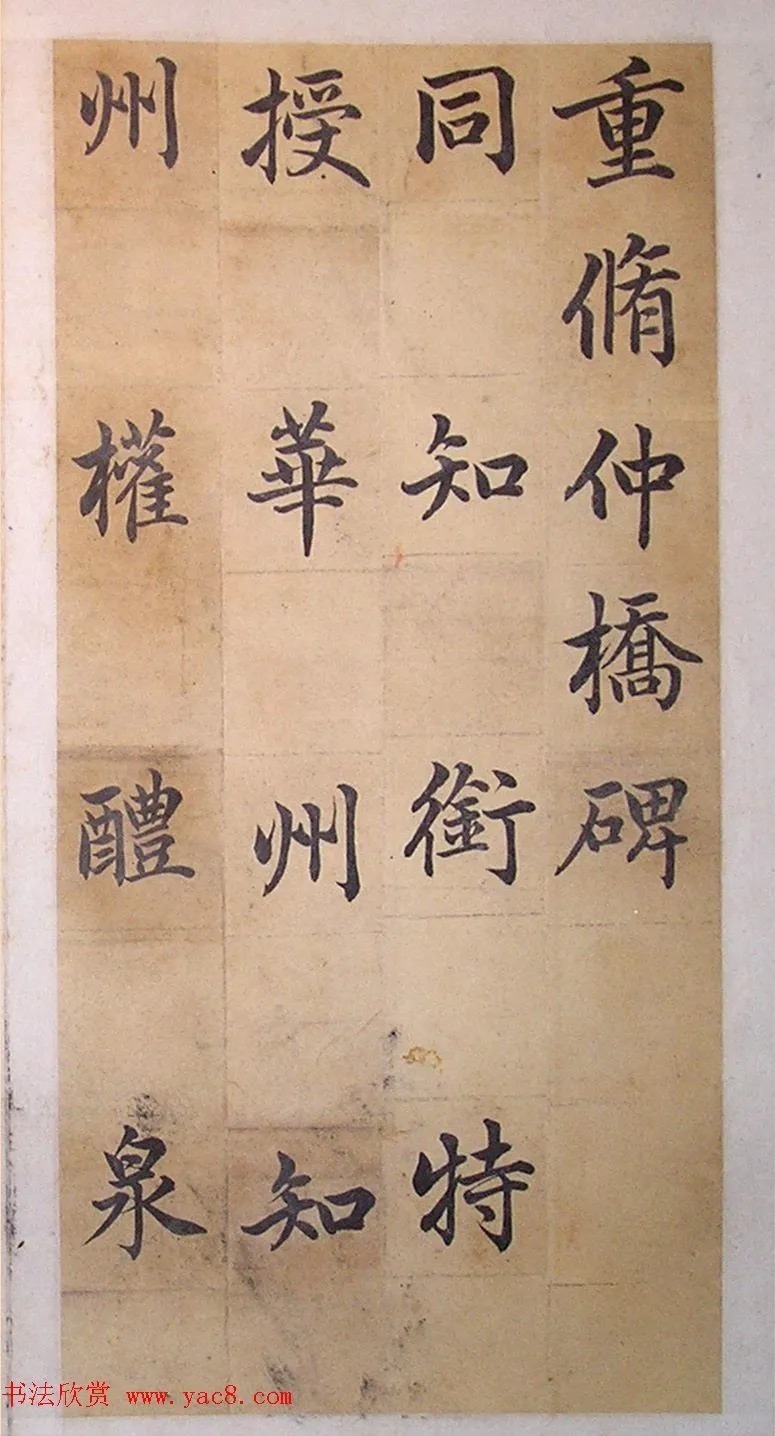 重脩仲橋碑
同知銜特
授華州知
州權醴泉
书法欣赏 www.yac8.com